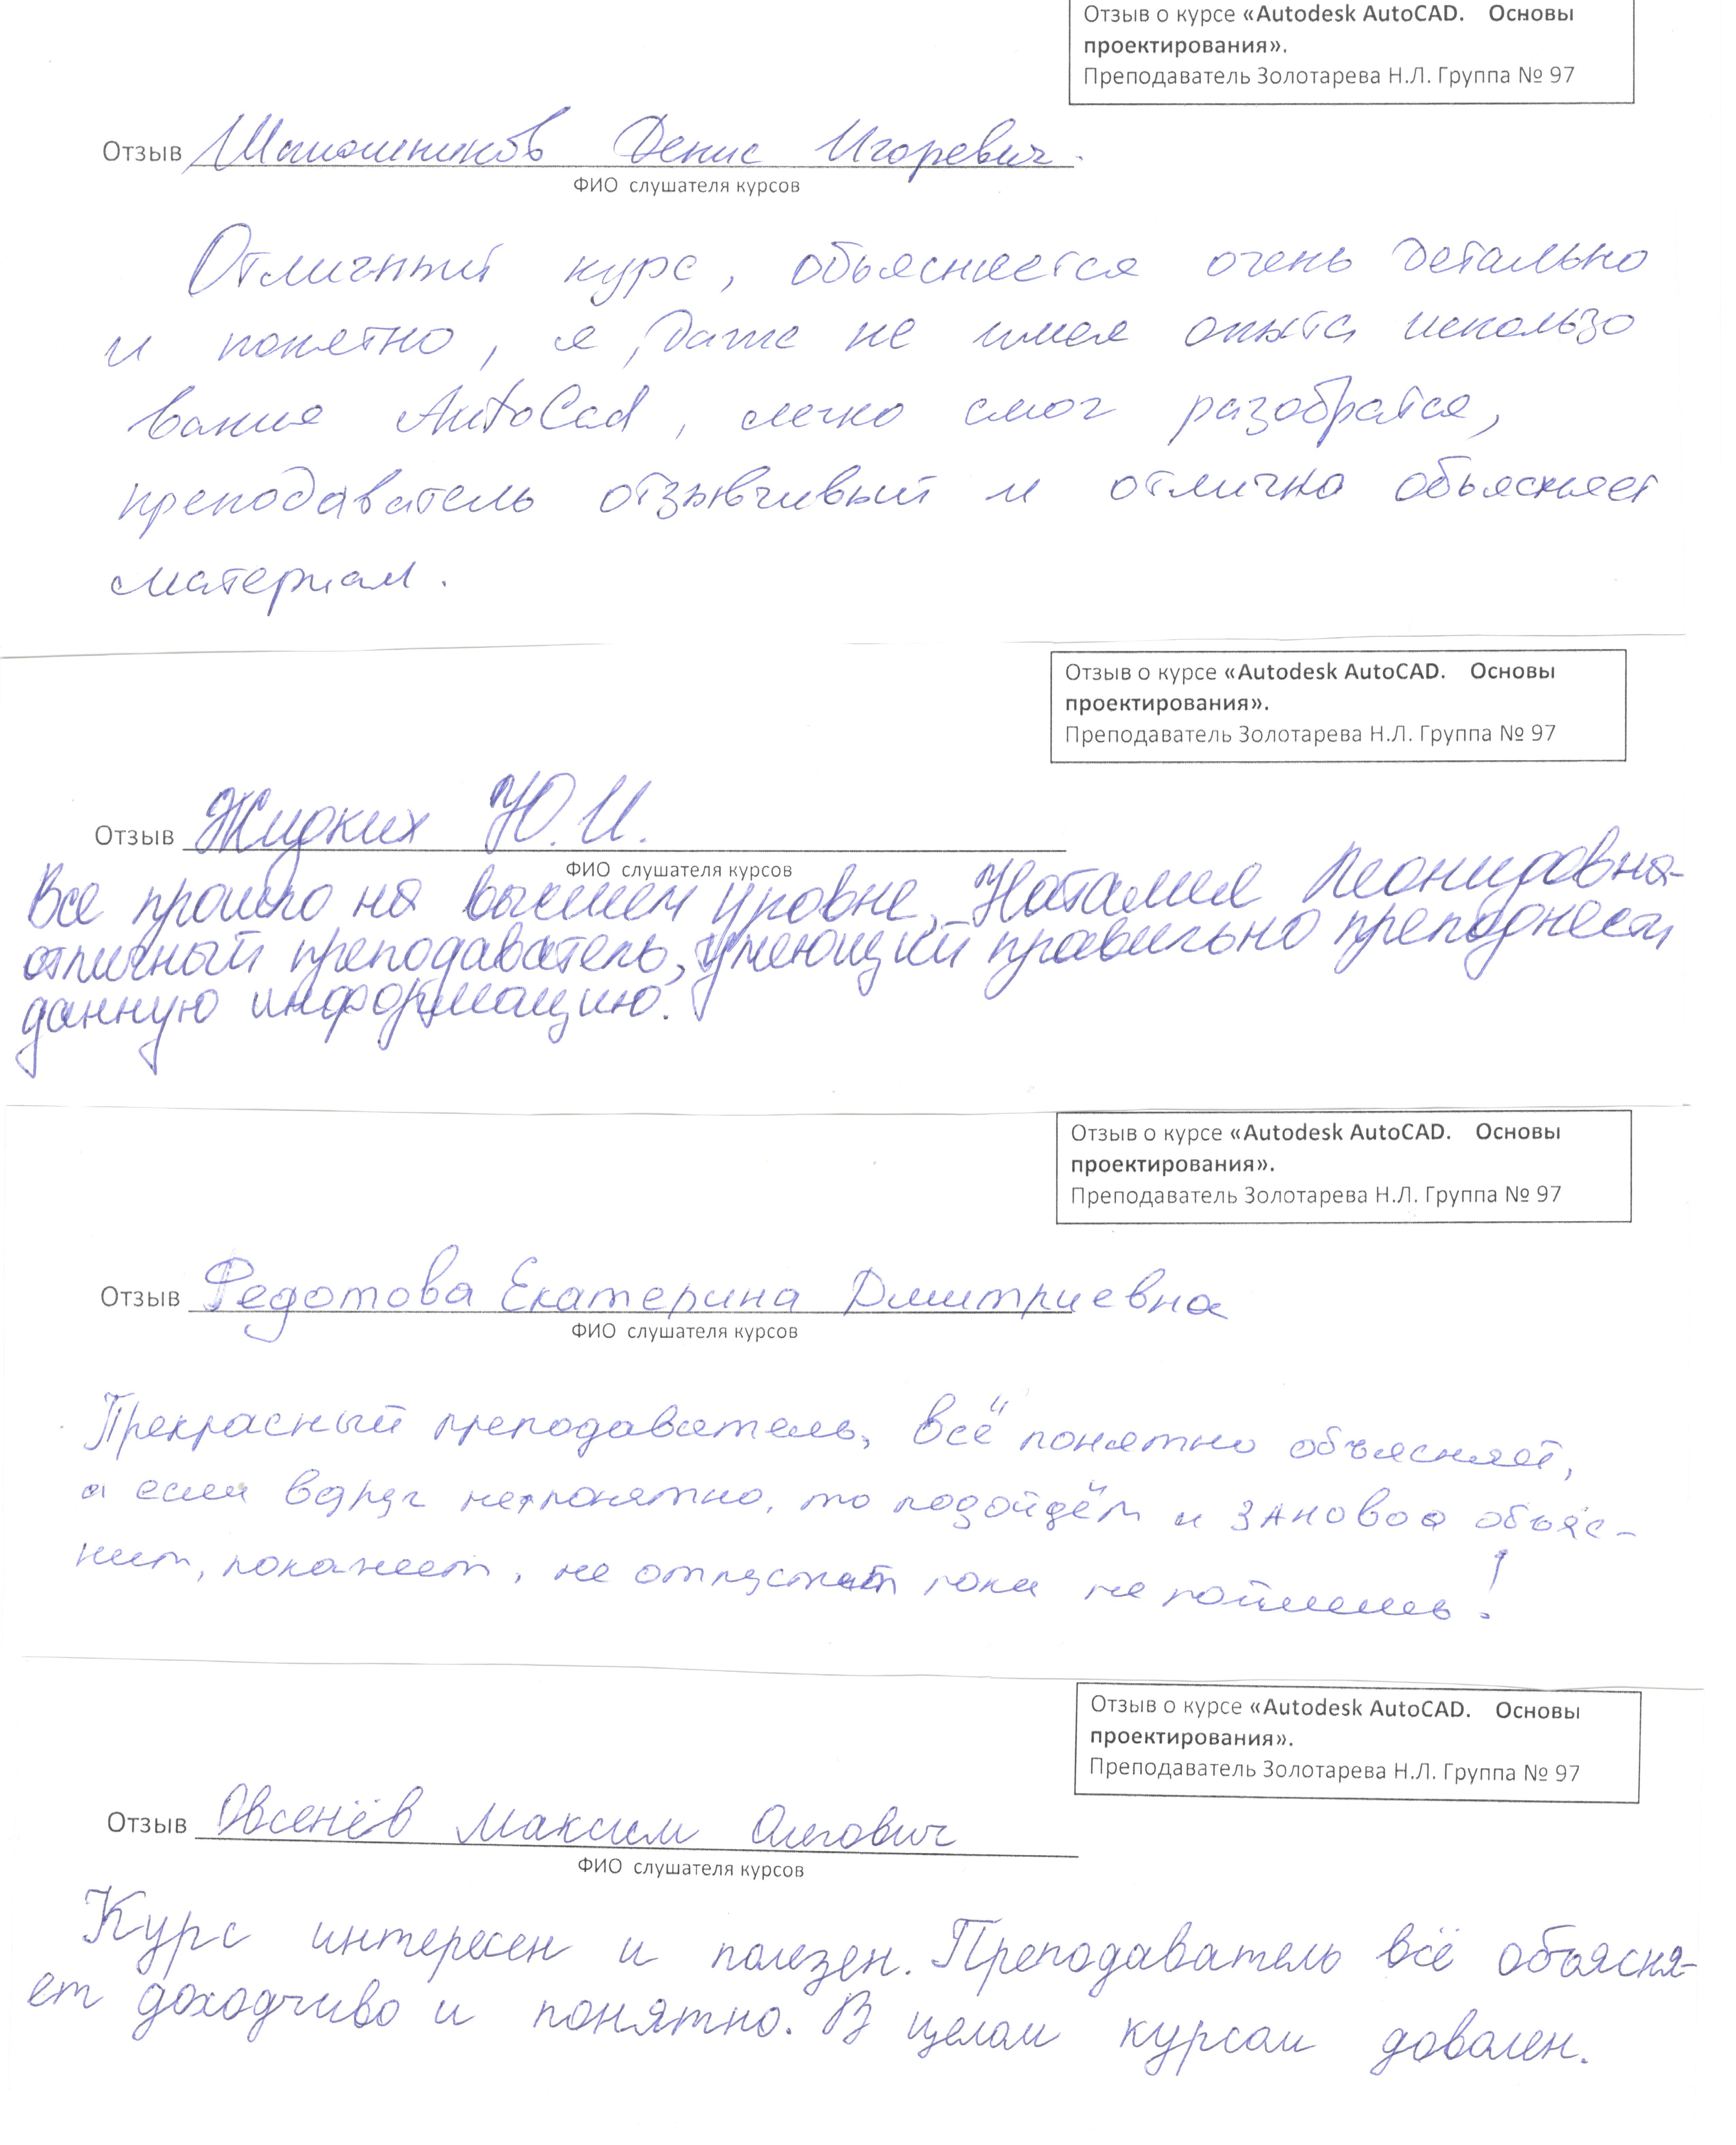 Отзыв о курсе «Autodesk AutoCAD. Основы
проектирования».
Преподаватель Золотарева Н.Л. Группа № 97
Отзыв Денис Игоревич.
ФИО слушателя курсов
Отличный курс, объясняется очень детально
и понятно, я, даже не имея опыта использо
вания AutoCad, легко смог разобратся,
преподаватель отзывчивый и отлично объясняет
материал.
Отзыв о курсе «Autodesk AutoCAD. Основы
проектирования».
Преподаватель Золотарева Н.Л. Группа № 97
Отзыв Жидких Ю.И.
ФИО слушателя курсов
Все прошло на высшем уровне, Наталия Леонидовна-
отличный преподаватель, умеющий правильно преподнести
данную информацию.
Отзыв о курсе «Autodesk AutoCAD. Основы
проектирования».
Преподаватель Золотарева Н.Л. Группа № 97
Отзыв Федотова Екатерина Дмитриевна
ФИО слушателя курсов
Прекрасный преподаватель, всё понятно объясняет,
а если вдруг непонятно, то подойдём и заново объяс-
нит, покажет, не отпустит пока не поймешь!
Отзыв о курсе «Autodesk AutoCAD. Основы
проектирования».
Преподаватель Золотарева Н.Л. Группа № 97
Отзыв Овсенёв Максим Олегович
ФИО слушателя курсов
Курс интересен и полезен. Преподаватель всё объясня-
ет доходчиво и понятно. В целом курсом доволен.